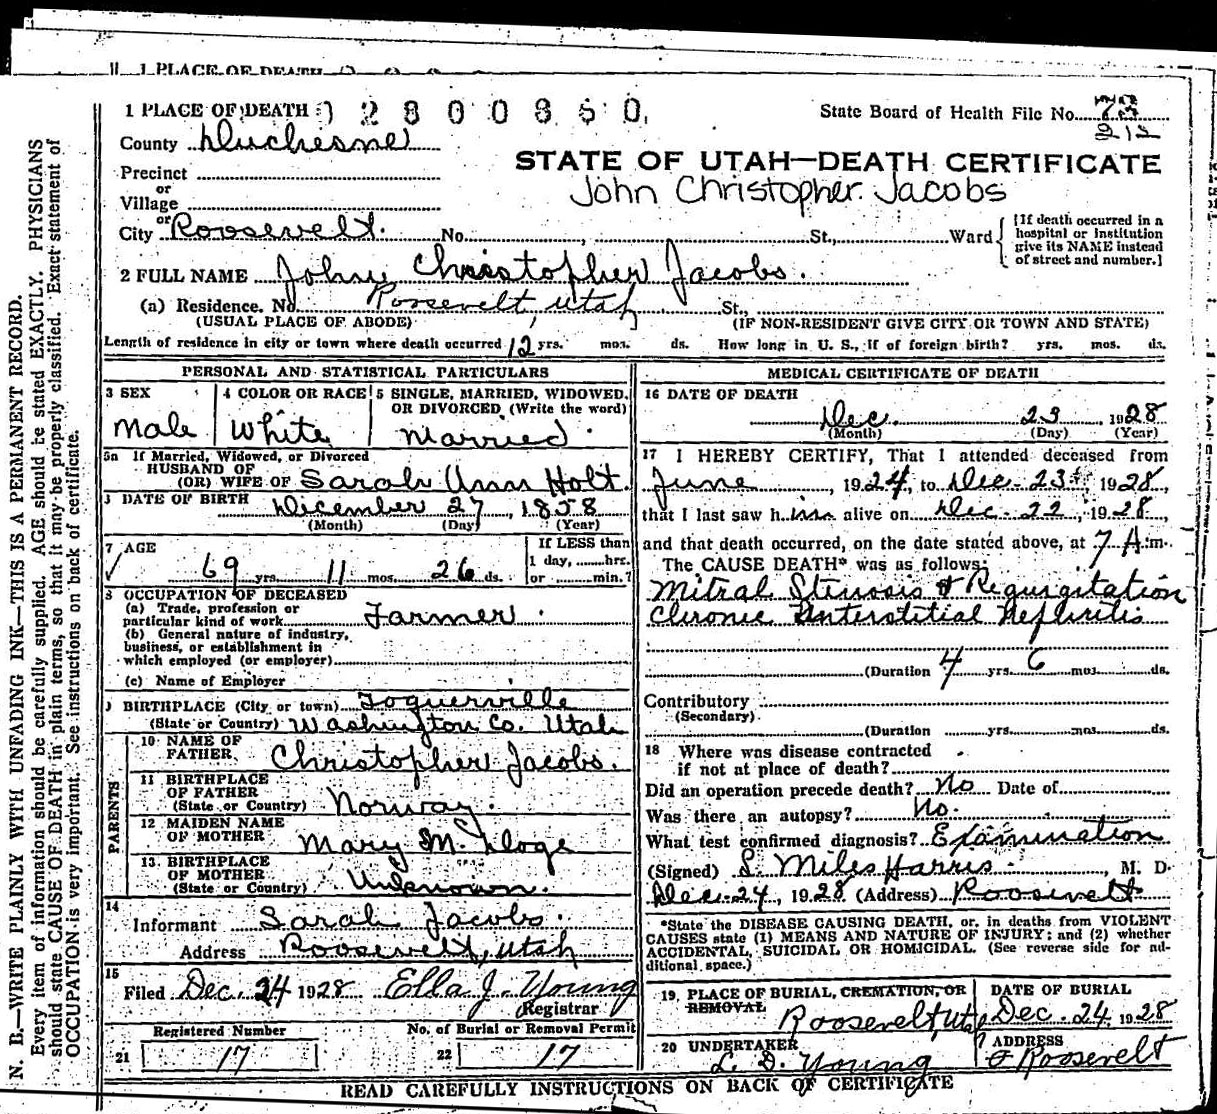 1 PLACE OF DEATH
1 PLACE OF DEATH 0 2 8 0 0 8 6 0
State Board of Health File No. 73
212
County Duchesne
STATE OF UTAH—DEATH CERTIFICATE
Precinct
or
Village
John Christopher Jacobs
or
City Roosevelt. No. , St., Ward
[If death occurred in a hospital or institution give its NAME instead of street and number.]
2 FULL NAME John Christopher Jacobs.
(a) Residence. No. Roosevelt, Utah St.,
(USUAL PLACE OF ABODE) (IF NON-RESIDENT GIVE CITY OR TOWN AND STATE)
Length of residence in city or town where death occurred 12 yrs. mos. ds. How long in U. S., if of foreign birth? yrs. mos. ds.
PERSONAL AND STATISTICAL PARTICULARS
3 SEX
Male
4 COLOR OR RACE
White
5 SINGLE, MARRIED, WIDOWED, OR DIVORCED (Write the word)
Married
5a If Married, Widowed, or Divorced
HUSBAND OF
(OR) WIFE OF Sarah Ann Holt.
DATE OF BIRTH December 27, 1858
(Month) (Day) (Year)
7 AGE
69 yrs. 11 mos. 26 ds.
If LESS than
1 day, hrs.
or min.?
8 OCCUPATION OF DECEASED
(a) Trade, profession or
particular kind of work Farmer
(b) General nature of industry,
business, or establishment in
which employed (or employer)
(c) Name of Employer
9 BIRTHPLACE (City or town) Toquerville
(State or Country) Washington Co. Utah
PARENTS
10 NAME OF
FATHER Christopher Jacobs.
11 BIRTHPLACE
OF FATHER
(State or Country) Norway.
12 MAIDEN NAME
OF MOTHER Mary M.
13 BIRTHPLACE
OF MOTHER
(State or Country) Unknown.
14
Informant Sarah Jacobs.
Address Roosevelt, Utah
15
Filed Dec. 24 1928 Ella J. Young
Registrar
Registered Number
21 17
No. of Burial or Removal Permit
22 17
MEDICAL CERTIFICATE OF DEATH
16 DATE OF DEATH
Dec. 23 1928
(Month) (Day) (Year)
17 I HEREBY CERTIFY, That I attended deceased from
June , 1924, to Dec. 23 1928,
that I last saw him alive on Dec. 22, 1928,
and that death occurred, on the date stated above, at 7 A. m.
The CAUSE DEATH* was as follows:
Mitral Stenosis & Regurgitation
Chronic Interstitial Nephritis
(Duration 4 yrs. 6 mos. ds.
Contributory
(Secondary)
(Duration yrs. mos. ds.
18 Where was disease contracted
if not at place of death?
Did an operation precede death? No Date of
Was there an autopsy? No.
What test confirmed diagnosis? Examination
(Signed) L. Miles Harris. , M. D.
Dec. 24, 1928 (Address) Roosevelt
*State the DISEASE CAUSING DEATH, or, in deaths from VIOLENT
CAUSES state (1) MEANS AND NATURE OF INJURY; and (2) whether
ACCIDENTAL, SUICIDAL OR HOMICIDAL. (See reverse side for additional space.)
19 PLACE OF BURIAL, CREMATION, OR REMOVAL
Roosevelt, Utah
DATE OF BURIAL
Dec. 24, 1928
20 UNDERTAKER
L. D. Young
ADDRESS
Roosevelt
READ CAREFULLY INSTRUCTIONS ON BACK OF CERTIFICATE
N. B.—WRITE PLAINLY WITH UNFADING INK—THIS IS A PERMANENT RECORD.
Every item of information should be carefully supplied. AGE should be stated EXACTLY. PHYSICIANS
should state CAUSE OF DEATH in plain terms, so that it may be properly classified. Exact statement of
OCCUPATION is very important. See instructions on back of certificate.